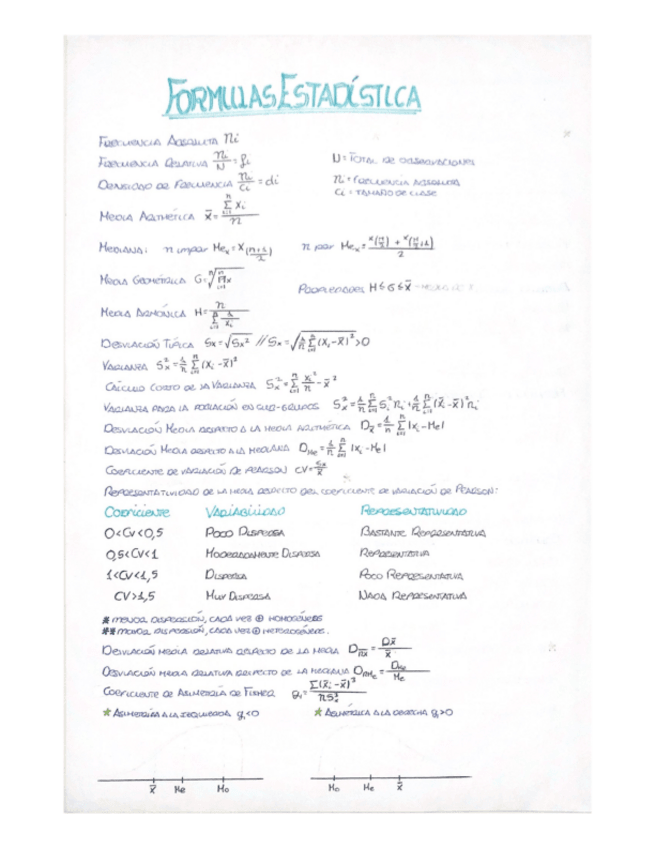 FORMULAS ESTADÍSTICA
FRECUENCIA ABSOLUTA ni
FRECUENCIA RELATIVA ni/N = fi    N = TOTAL DE OBSERVACIONES
DENSIDAD DE FRECUENCIA ni/ci = di    ni = FRECUENCIA ABSOLUTA
Ci = TAMAÑO DE CLASE
MEDIA ARITMÉTICA x̄ = Σ(i=1→n) xi / n
MEDIANA: n impar Me_x = x((n+1)/2)    n par Me_x = (x(n/2) + x(n/2+1)) / 2
MEDIA GEOMÉTRICA G = ⁿ√(Π(i=1→n) x)    PROPIEDADES H ≤ G ≤ x̄
MEDIA ARMÓNICA H = n / Σ(i=1→n) 1/xi
DESVIACIÓN TÍPICA Sx = √Sx² // Sx = √(1/n Σ(i=1→n) (xi - x̄)²) > 0
VARIANZA Sx² = 1/n Σ(i=1→n) (xi - x̄)²
CÁLCULO CORTO DE LA VARIANZA Sx² = Σ(i=1→n) xi²/n - x̄²
VARIANZA PARA LA POBLACIÓN EN SUB-GRUPOS Sx² = 1/n Σ(i=1→n) Si² ni + 1/n Σ(i=1→n) (x̄i - x̄)² ni
DESVIACIÓN MEDIA RESPECTO A LA MEDIA ARITMÉTICA Dx̄ = 1/n Σ(i=1→n) |xi - Me|
DESVIACIÓN MEDIA RESPECTO A LA MEDIANA D_Me = 1/n Σ(i=1→n) |xi - Me|
COEFICIENTE DE VARIACIÓN DE PEARSON CV = Sx/x̄
REPRESENTATIVIDAD DE LA MEDIA RESPECTO DEL COEFICIENTE DE VARIACIÓN DE PEARSON:
COEFICIENTE    VARIABILIDAD    REPRESENTATIVIDAD
0<CV<0,5    POCO DISPERSA    BASTANTE REPRESENTATIVA
0,5<CV<1    MODERADAMENTE DISPERSA    REPRESENTATIVA
1<CV<1,5    DISPERSA    POCO REPRESENTATIVA
CV>1,5    MUY DISPERSA    NADA REPRESENTATIVA
* MENOR DISPERSIÓN, CADA VEZ ⊕ HOMOGÉNEAS
** MAYOR DISPERSIÓN, CADA VEZ ⊕ HETEROGÉNEAS.
DESVIACIÓN MEDIA RELATIVA RESPECTO DE LA MEDIA D_Rx̄ = Dx̄/x̄
DESVIACIÓN MEDIA RELATIVA RESPECTO DE LA MEDIANA D_RMe = D_Me/Me
COEFICIENTE DE ASIMETRÍA DE FISHER g₁ = Σ(xi - x̄)³ / nSx³
* ASIMETRÍA A LA IZQUIERDA g₁<0    * ASIMETRÍA A LA DERECHA g₁>0
x̄ Me Mo    Mo Me x̄